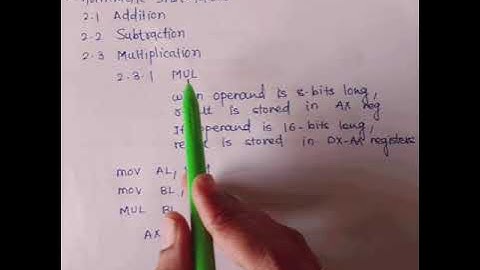 2.1 Addition
2.2 Subtraction
2.3 Multiplication
2.3.1 MUL
operand is 8-bits long,
is stored in AX reg
operand is 16-bits long,
is stored in DX-AX registers
mov AL,
mov BL,
MUL BL
AX